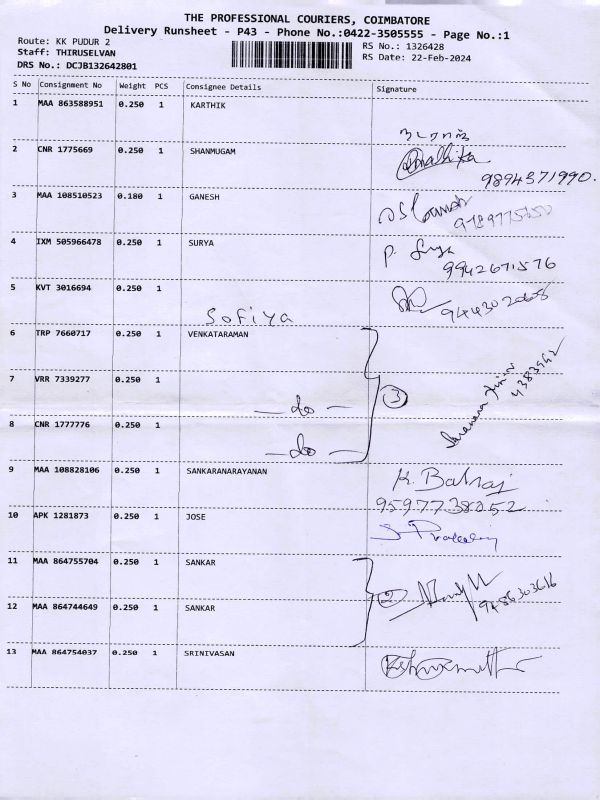 THE PROFESSIONAL COURIERS, COIMBATORE
Delivery Runsheet - P43 - Phone No.:0422-3505555 - Page No.:1
Route: KK PUDUR 2
Staff: THIRUSELVAN
DRS No.: DCJB132642801
RS No.: 1326428
RS Date: 22-Feb-2024
S No Consignment No Weight PCS Consignee Details Signature
1 MAA 863588951 0.250 1 KARTHIK
நடராஜ்
2 CNR 1775669 0.250 1 SHANMUGAM
9894371990.
3 MAA 108510523 0.180 1 GANESH
4 IXM 505966478 0.250 1 SURYA P. Surya
9942671576
5 KVT 3016694 0.250 1
Sofiya 9443020608
6 TRP 7660717 0.250 1 VENKATARAMAN
7 VRR 7339277 0.250 1
— do — 3
8 CNR 1777776 0.250 1
— do —
9 MAA 108828106 0.250 1 SANKARANARAYANAN K. Balraj
9597738252
10 APK 1281873 0.250 1 JOSE
11 MAA 864755704 0.250 1 SANKAR
2 9486303616
12 MAA 864744649 0.250 1 SANKAR
13 MAA 864754037 0.250 1 SRINIVASAN